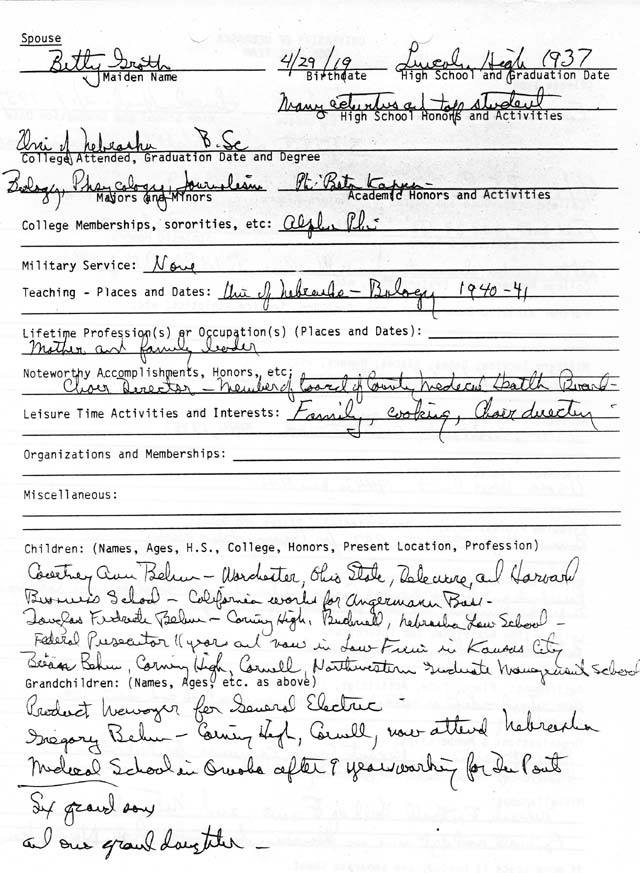 Spouse
Betty Groth 4/29/19 Lincoln High 1937
Maiden Name Birthdate High School and Graduation Date
Many activities and top student
High School Honors and Activities
Univ of Nebraska B.Sc
College Attended, Graduation Date and Degree
Biology, Phsycology, Journalism Phi Beta Kappa
Majors and Minors Academic Honors and Activities
College Memberships, sororities, etc: Alpha Phi
Military Service: None
Teaching - Places and Dates: Univ of Nebraska - Biology 1940-41
Lifetime Profession(s) or Occupation(s) (Places and Dates):
Mother and family leader
Noteworthy Accomplishments, Honors, etc:
Choir Director - Member of board of County Medical Health Board -
Leisure Time Activities and Interests: Family, cooking, Choir directing
Organizations and Memberships:
Miscellaneous:
Children: (Names, Ages, H.S., College, Honors, Present Location, Profession)
Courtney Ann Behm - Worchester, Ohio State, Delaware, and Harvard
Business School - California works for
Douglas Behm - Corning High, Bucknell, Nebraska Law School -
Federal Prosecutor 11 years and now in Law Firm in Kansas City
Behm, Corning High, Cornell, Northwestern Graduate Management School
Grandchildren: (Names, Ages, etc. as above)
Product Manager for General Electric
Gregory Behm - Corning High, Cornell, now attend Nebraska
Medical School in Omaha after 9 years working for Du Pont
Six grand sons
and one grand daughter -